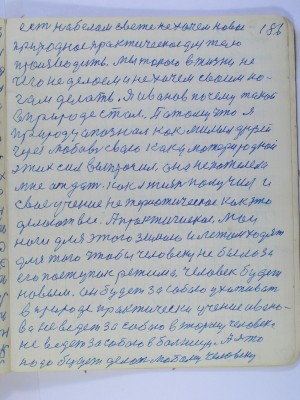 186
ект на белом свете не хочем новое
природное практическое думаю
производить. мы такого в жизни не
чего не делаем и не хочем своим но-
гам делать. Я иванов почему такой
в природе стал. Я потому что я
природу опознал как милым другом
через любовь свою как я матери родной
этих сил выпросил. она не пожалела
мне отдать. как я живу получил и
свое учение не теоретическое как это
делают все. А практическое. мои
ноги для этого зимою и летом ходят
для того чтобы человеку не было за
его поступок ретима. человек будет
новым. он будет за собою ухаживать
в природе практически учение ивано-
ва не ведет за собою в тюрьму человека
не ведет за собою в больницу. А это
надо будет делать любому человеку